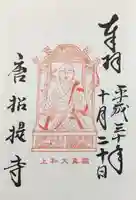 奉拝
平成三十年
十月二十日
鑑真大和上
唐招提寺